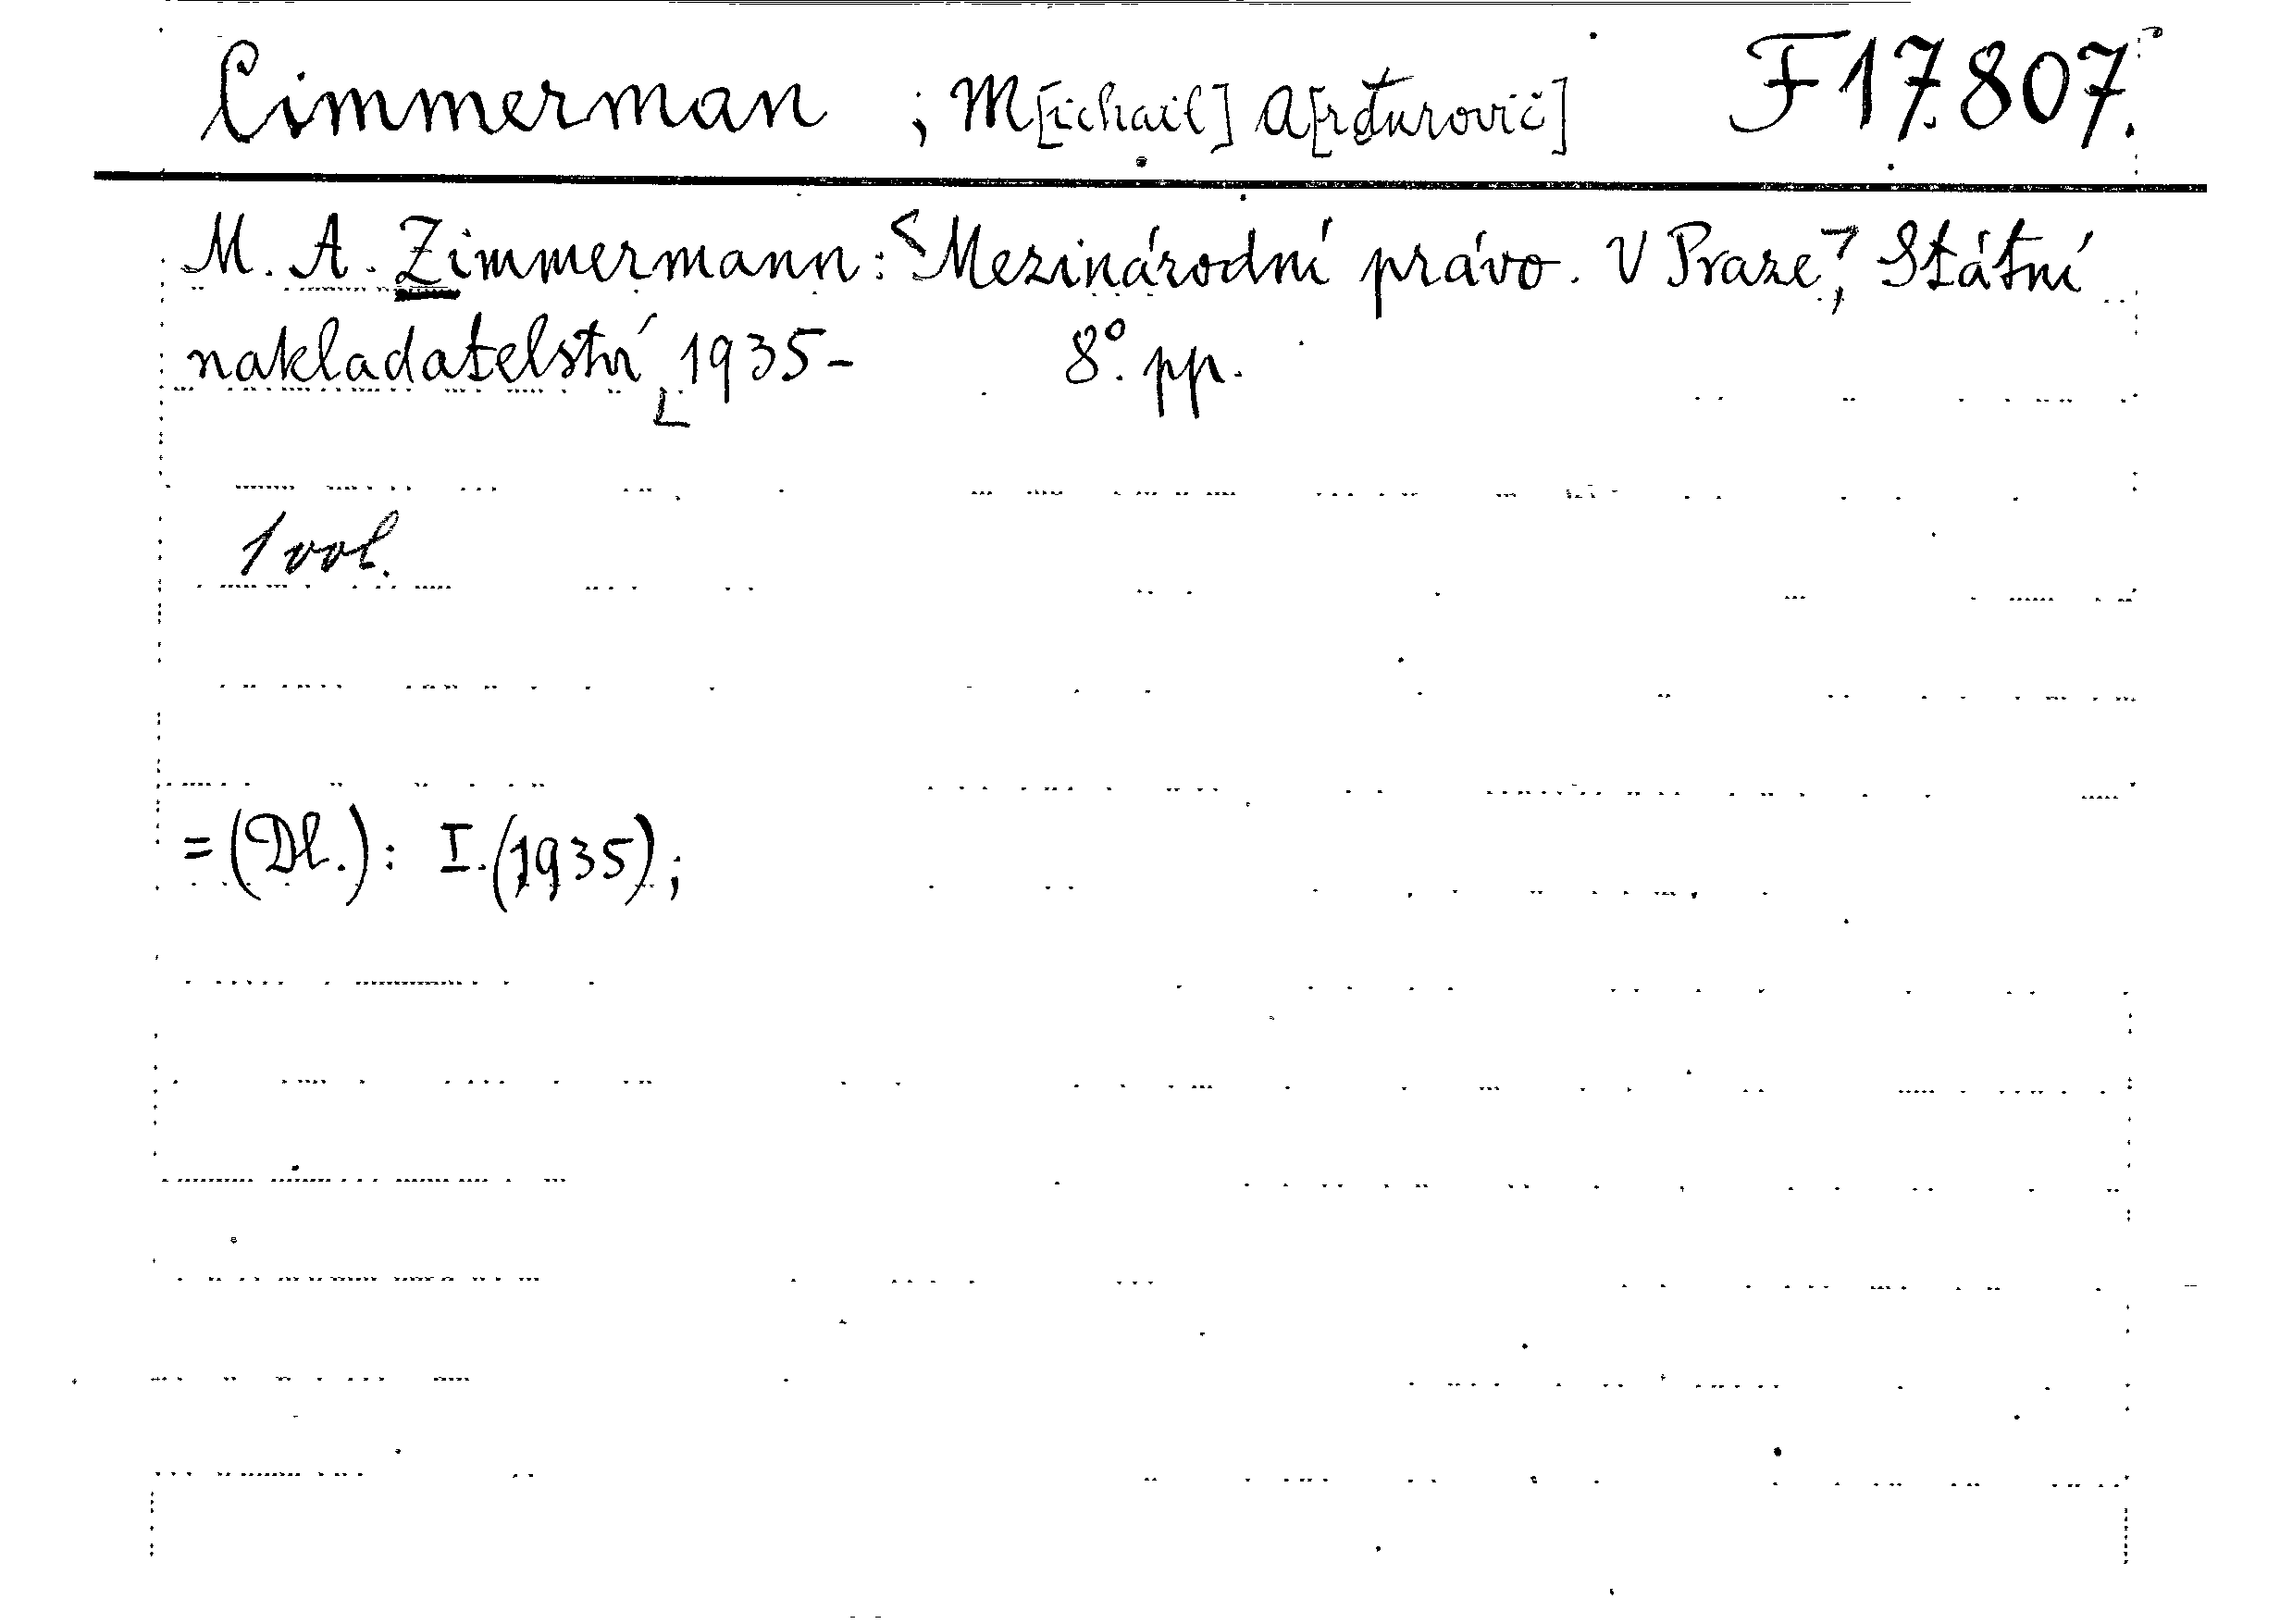 Cimmerman ; M[ichail] A[rťurovič] F 17.807.
M. A. Zimmermann: <Mezinárodní právo. V Praze>, Státní
nakladatelství 1935- 8°. pp.
1 vol.
= (Dl.): I. (1935);